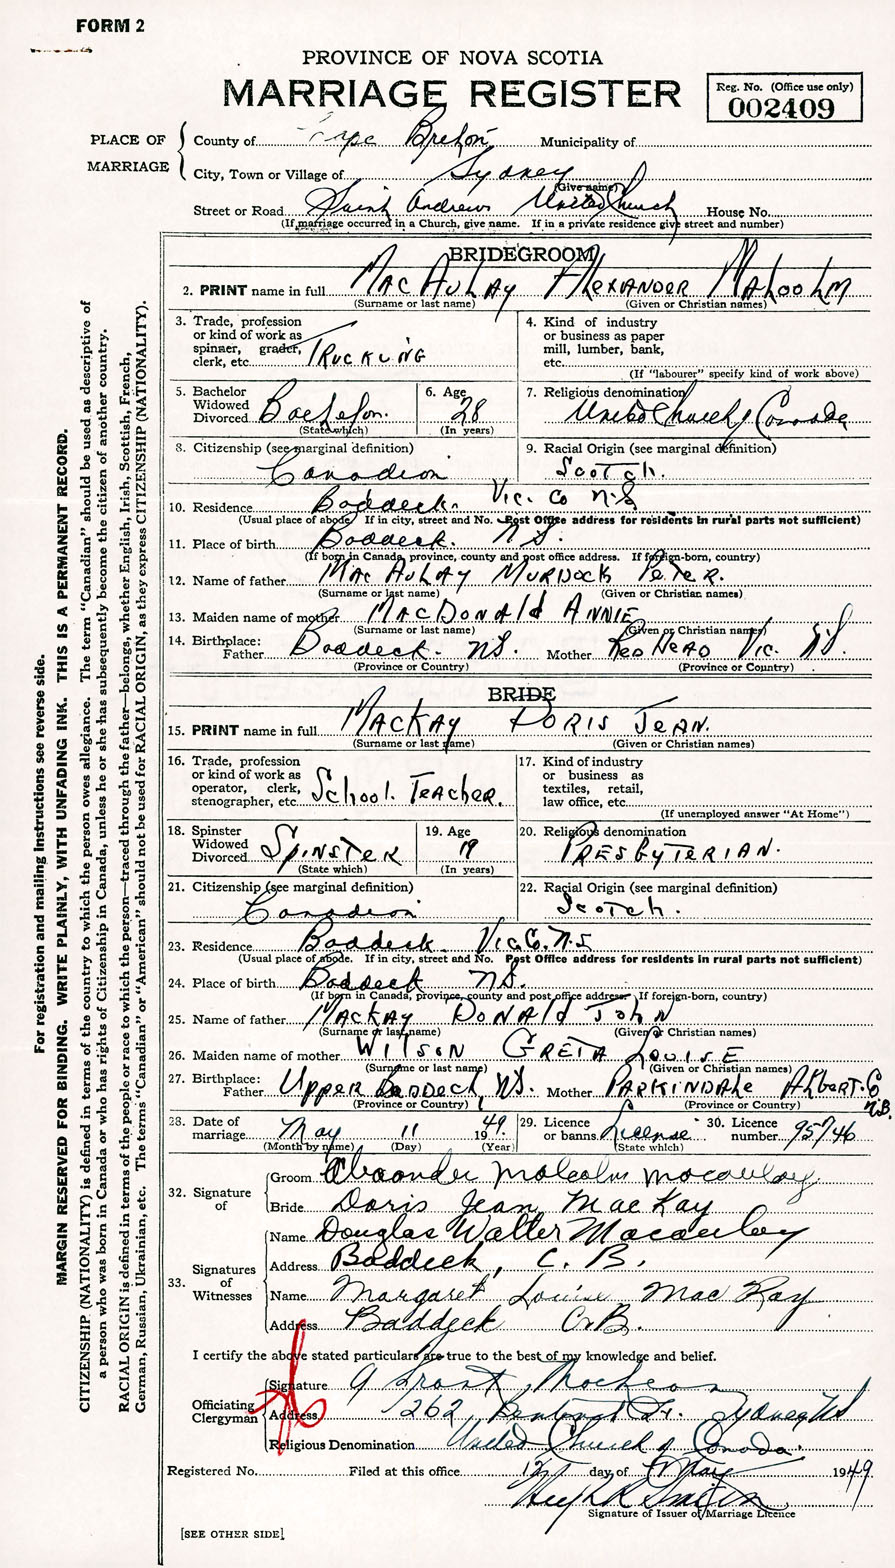 FORM 2
PROVINCE OF NOVA SCOTIA
MARRIAGE REGISTER
Reg. No. (Office use only)
002409
PLACE OF MARRIAGE
County of Cape Breton Municipality of
City, Town or Village of Sydney
(Give name)
Street or Road Saint Andrews United Church House No.
(If marriage occurred in a Church, give name. If in a private residence give street and number)
BRIDEGROOM
2. PRINT name in full MacAulay Alexander Malcolm
(Surname or last name) (Given or Christian names)
3. Trade, profession or kind of work as spinner, grader, clerk, etc. Trucking
4. Kind of industry or business as paper mill, lumber, bank, etc.
(If "labourer" specify kind of work above)
5. Bachelor Widowed Divorced Bachelor.
(State which)
6. Age 28
(In years)
7. Religious denomination United Church of Canada
8. Citizenship (see marginal definition) Canadian
9. Racial Origin (see marginal definition) Scotch.
10. Residence Baddeck. Vic. Co N.S
(Usual place of abode. If in city, street and No. Post Office address for residents in rural parts not sufficient)
11. Place of birth Baddeck. N.S.
(If born in Canada, province, county and post office address. If foreign-born, country)
12. Name of father MacAulay Murdock Peter.
(Surname or last name) (Given or Christian names)
13. Maiden name of mother MacDonald Annie
(Surname or last name) (Given or Christian names)
14. Birthplace: Father Baddeck. N.S. Mother Red Head Vic. N.S.
(Province or Country) (Province or Country)
BRIDE
15. PRINT name in full MacKay Doris Jean.
(Surname or last name) (Given or Christian names)
16. Trade, profession or kind of work as operator, clerk, stenographer, etc. School. Teacher.
17. Kind of industry or business as textiles, retail, law office, etc.
(If unemployed answer "At Home")
18. Spinster Widowed Divorced Spinster
(State which)
19. Age 19
(In years)
20. Religious denomination Presbyterian.
21. Citizenship (see marginal definition) Canadian
22. Racial Origin (see marginal definition) Scotch.
23. Residence Baddeck Vic. Co. N.S
(Usual place of abode. If in city, street and No. Post Office address for residents in rural parts not sufficient)
24. Place of birth Baddeck N.S.
(If born in Canada, province, county and post office address. If foreign-born, country)
25. Name of father MacKay Donald John
(Surname or last name) (Given or Christian names)
26. Maiden name of mother Wilson Greta Louise
(Surname or last name) (Given or Christian names)
27. Birthplace: Father Upper Baddeck, N.S. Mother Parkindale Albert. Co N.B.
(Province or Country) (Province or Country)
28. Date of marriage May 11 1949
(Month by name) (Day) (Year)
29. Licence or banns License
(State which)
30. Licence number 95746
32. Signature of
Groom Alexander Malcolm Macaulay
Bride Doris Jean MacKay
33. Signatures of Witnesses
Name Douglas Walter Macauley
Address Baddeck, C. B.
Name Margaret Louise MacKay
Address Baddeck C.B.
I certify the above stated particulars are true to the best of my knowledge and belief.
Officiating Clergyman
Signature
Address 262 Sydney, N.S
Religious Denomination United Church of Canada.
Registered No. Filed at this office 12 day of May 1949
Signature of Issuer of Marriage Licence
[SEE OTHER SIDE]
For registration and mailing instructions see reverse side.
MARGIN RESERVED FOR BINDING. WRITE PLAINLY, WITH UNFADING INK. THIS IS A PERMANENT RECORD.
CITIZENSHIP (NATIONALITY) is defined in terms of the country to which the person owes allegiance. The term "Canadian" should be used as descriptive of
a person who was born in Canada or who has rights of Citizenship in Canada, unless he or she has subsequently become the citizen of another country.
RACIAL ORIGIN is defined in terms of the people or race to which the person—traced through the father—belongs, whether English, Irish, Scottish, French,
German, Russian, Ukrainian, etc. The terms "Canadian" or "American" should not be used for RACIAL ORIGIN, as they express CITIZENSHIP (NATIONALITY).